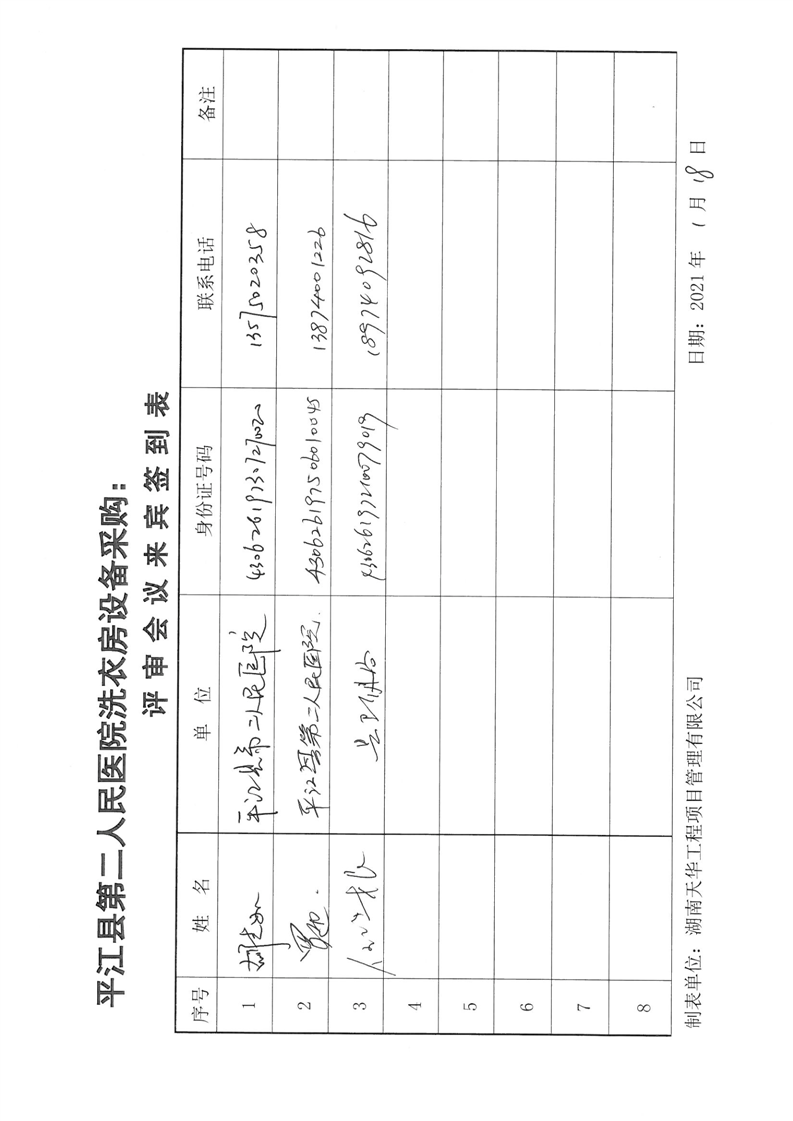 平江县第二人民医院洗衣房设备采购：
评审会议来宾签到表
序号 姓名 单位 身份证号码 联系电话 备注
1 平江县第二人民医院 13575020358
2 平江县第二人民医院. 430626197506010045 13874001226
3 18974092816
4
5
6
7
8
制表单位：湖南天华工程项目管理有限公司 日期：2021年1月18日